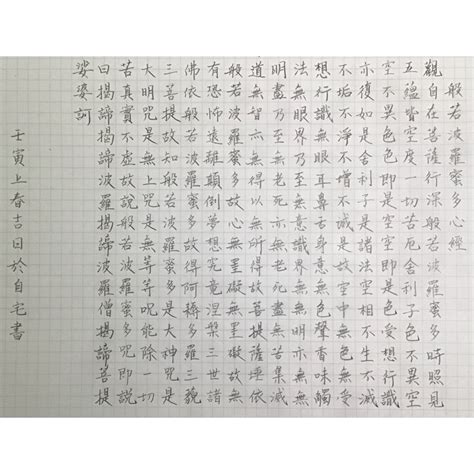 般若波羅蜜多心經
觀自在菩薩行深般若波羅蜜多時照見
五蘊皆空度一切苦厄舍利子色不異空
空不異色色即是空空即是色受想行識
亦復如是舍利子是諸法空相不生不滅
不垢不淨不增不減是故空中無色無受
想行識無眼耳鼻舌身意無色聲香味觸
法無眼界乃至無意識界無無明亦無無
明盡乃至無老死亦無老死盡無苦集滅
道無智亦無得以無所得故菩提薩埵依
般若波羅蜜多故心無罣礙無罣礙故無
有恐怖遠離顛倒夢想究竟涅槃三世諸
佛依般若波羅蜜多故得阿耨多羅三藐
三菩提故知般若波羅蜜多是大神咒是
大明咒是無上咒是無等等咒能除一切
苦真實不虛故說般若波羅蜜多咒即說
曰揭諦揭諦波羅揭諦波羅僧揭諦菩提
娑婆訶
壬寅上春吉日於自宅書